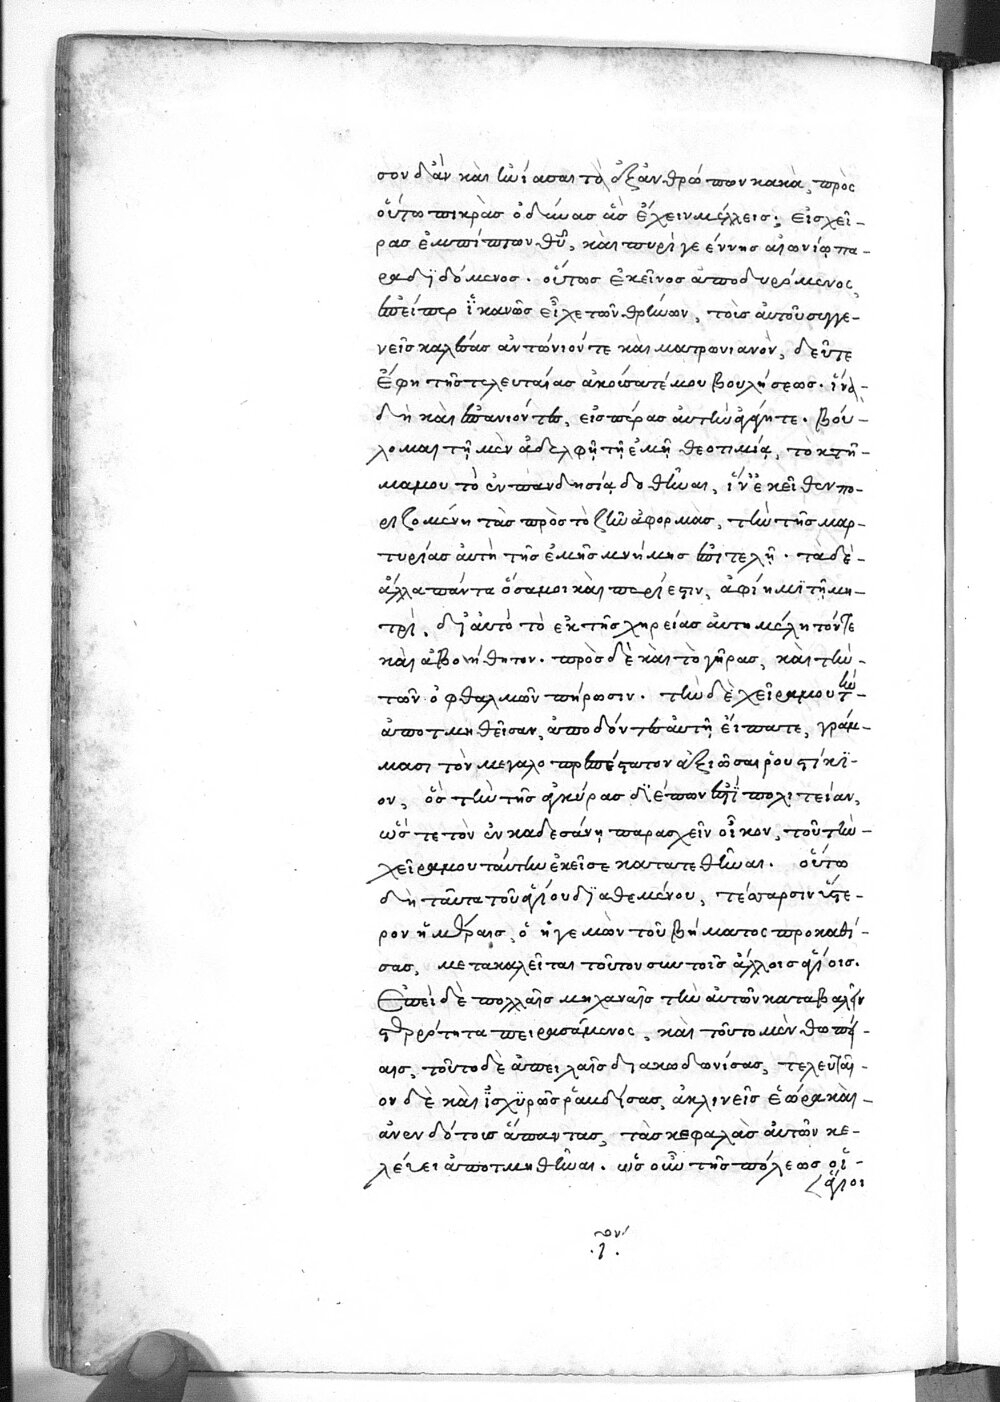 σον δ' ἂν καὶ ἰάσαι τὸ ἐξ ἀνθρώπων κακὰ, πρὸς
οὕτω πικρὰς ὀδύνας ἃς ἔχειν μέλλεις; εἰς χεῖ-
ρας ἐμπίπτων θῦ, καὶ πυρὶ γεέννης αἰωνίῳ πα-
ραδιδόμενος. οὕτως ἐκεῖνος ἀποδυρόμενος,
ἐπείπερ ἱκανῶς εἶχε τῶν θρήνων, τοὺς αὐτοῦ συγγε-
νεῖς καλέσας ἀντώνιόν τε καὶ ματρωνιανὸν, δεῦτε
ἔφη τῆς τελευταίας ἀκούσατέ μου βουλήσεως. ἵνα
δὴ καὶ ἐπανιόντες, εἰς πέρας αὐτὴν ἀγάγητε. βού-
λομαι τῇ μὲν ἀδελφῇ τῇ ἐμῇ θεοτιμίᾳ, τὸ κτῆ-
μα μου τὸ ἐν πανδησίᾳ δοθῆναι, ἵν' ἐκεῖθεν πο-
ριζομένη τὰς πρὸς τὸ ζῆν ἀφορμὰς, τὴν τῆς μαρ-
τυρίας αὐτὴ τῆς ἐμῆς μνήμης ἐπιτελῇ. τὰ δὲ
ἄλλα πάντα ὅσα μοι καὶ περίεστιν, ἀφίημι τῇ μη-
τρὶ, δι' αὐτό τὸ ἐκ τῆς χηρείας αὐτῇ μέλητόν τε
καὶ ἀβοήθητον. πρὸς δὲ καὶ τὸ γῆρας, καὶ τὴν
τῶν ὀφθαλμῶν πήρωσιν. τὴν δὲ χεῖρά μου τὴν
ἀποτμηθεῖσαν, ἀποδόντες αὐτῇ εἴπατε, γράμ-
μασι τὸν μεγαλοπρεπέστατον ἀξιῶσαι ῥουστίκι-
ον, ὃς τὴν τῆς ἀγκύρας διέπων ἐπὶ πολιτείαν,
ὥστε τὸν ἐν καδεσάνῃ παρασχεῖν οἶκον, τοῦ τὴν
χεῖρά μου ταύτην ἐκεῖσε κατατεθῆναι. οὕτω
δὴ ταῦτα τοῦ ἁγίου διαθεμένου, τέσσαρσιν ὕστε-
ρον ἡμέραις, ὁ ἡγεμὼν τοῦ βήματος προκαθί-
σας, μετακαλεῖται τοῦτον σὺν τοῖς ἄλλοις ἁγίοις.
Ἐπεὶ δὲ πολλαῖς μηχαναῖς τὴν αὐτῶν καταβαλεῖν
στερρότητα πειρασάμενος, καὶ τοῦτο μὲν θωπεί-
αις, τοῦτο δὲ ἀπειλαῖς διακωδωνίσας, τελευταῖ-
ον δὲ καὶ ἰσχυρῶς ῥαβδίσας, ἀκλινεῖς ἑώρα καὶ
ἀνενδότοις ἅπαντας, τὰς κεφαλὰς αὐτῶν κε-
λεύει ἀποτμηθῆναι. ὡς οὖν τῆς πόλεως οἱ
ἅγιοι